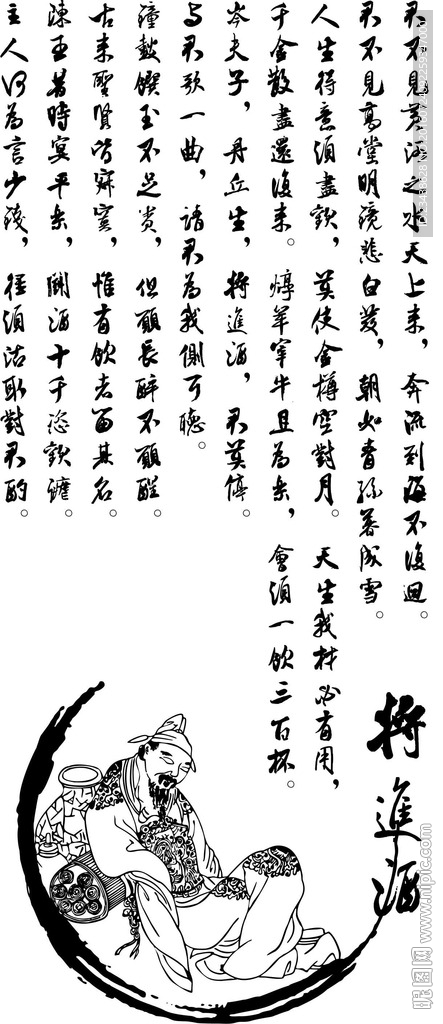 君不見黃河之水天上來，奔流到海不復迴。
君不見高堂明鏡悲白髮，朝如青絲暮成雪。
人生得意須盡歡，莫使金樽空對月。天生我材必有用，
千金散盡還復來。烹羊宰牛且為樂，會須一飲三百杯。
岑夫子，丹丘生，將進酒，君莫停。
与君歌一曲，請君為我側耳聽。
鐘鼓饌玉不足貴，但願長醉不願醒。
古來聖賢皆寂寞，惟有飲者留其名。
陳王昔時宴平樂，鬭酒十千恣歡謔。
主人何為言少錢，徑須沽取對君酌。
將進酒
昵图网 www.nipic.com